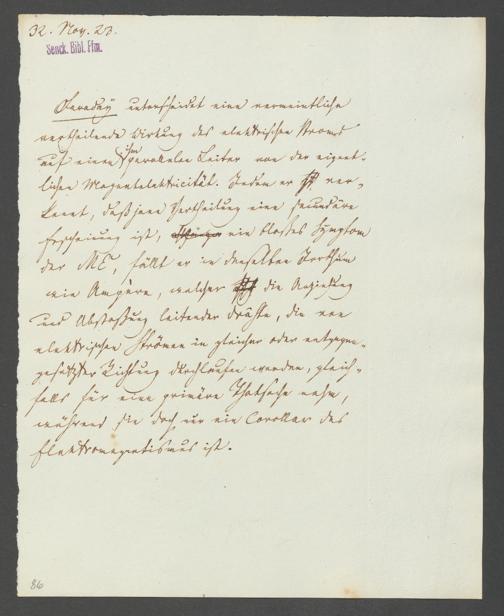 32. Nov. 23.
Senck. Bibl. Ffm.
Faraday unterscheidet eine vermeintliche
vertheilende Wirkung des elektrischen Stroms
auf einen ihm parallelen Leiter von der eigent-
lichen Magnetelektricität. Indem er ver-
kennt, daß jene Vertheilung eine secundäre
Erscheinung ist, ein bloßes Symptom
der ME, fällt er in denselben Irrthum
wie Ampère, welcher die Anziehung
und Abstoßung leitender Drähte, die von
elektrischen Strömen in gleicher oder entgegen-
gesetzter Richtung durchlaufen werden, gleich-
falls für eine primäre Thatsache nahm,
während sie doch nur ein Corollar des
Elektromagnetismus ist.
86